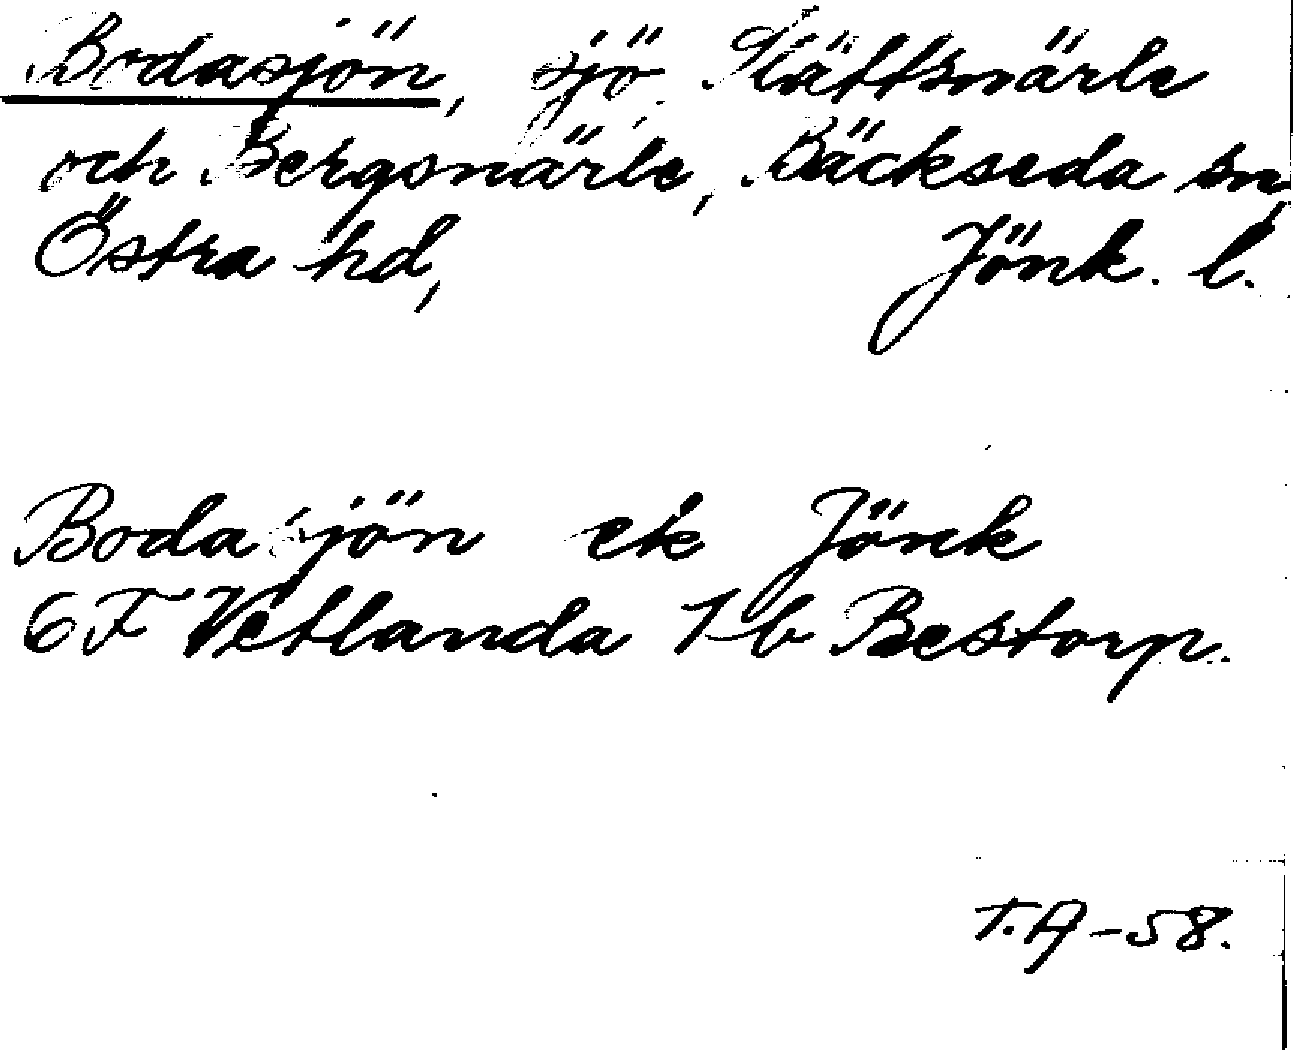 Bodasjön, sjö. Slättsnärle
och Bergsnärle, Bäckseda sn,
Östra hd, Jönk. l.
Bodasjön ek Jönk
6 F Vetlanda 1 b Bestorp.
T.A-58.